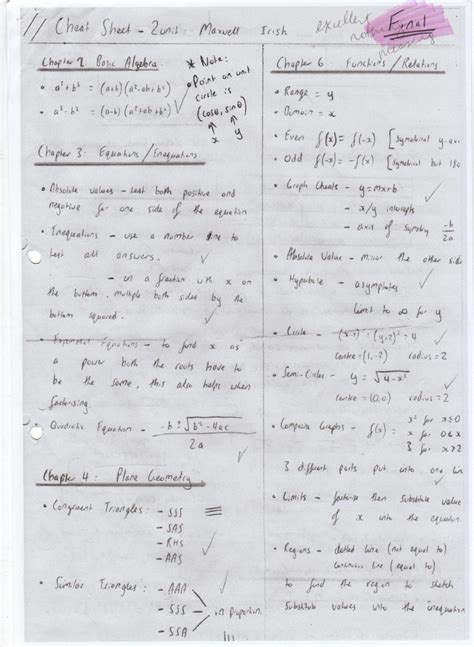 // Cheat Sheet - 2unit : Maxwell Irish
excellent
nothing
missing
Final
Chapter 2 Basic Algebra
• a³+b³ = (a+b)(a²-ab+b²)
• a³-b³ = (a-b)(a²+ab+b²)
* Note:
• Point on unit
circle is
(cosθ, sinθ)
x y
Chapter 3: Equations/Inequations
• Absolute values - test both positive and
negative for one side of the equation
• Inequations - use a number line to
test all answers.
- on a fraction with x on
the bottom, multiple both sides by the
bottom squared.
• Exponential Equations - to find x as
a power both the roots have to
be the same, this also helps when
factorising.
• Quadratic Equation - -b ± √b²-4ac
2a
Chapter 4 : Plane Geometry
• Congruent Triangles: - SSS ≡
- SAS
- RHS
- AAS
• Similar Triangles: - AAA
- SSS - in proportion.
- SSA
Chapter 6 Functions/Relations
• Range = y
• Domain = x
• Even f(x) = f(-x) [symetrical y-axi
• Odd f(x) = -f(x) [symetrical but 180
• Graph Cheats - y=mx+b
- x/y intercepts
- axis of symetry -b
2a
• Absolute Value - mirror the other side
• Hyperbole - asymptotes
limit to ∞ for y
• Circle - (x-1)²+(y+2)²=4
centre = (1,-2) radius = 2
• Semi-Circles - y = √4-x²
centre = (0,0) radius = 2
• Composite Graphs - f(x) = x² for x≥0
3 for x>2
3 different parts put into one lin
• Limits - factorise then substitute value
of x into the equation.
• Regions - dotted line (not equal to)
continuous line (equal to)
to find the region to sketch
substitute values into the inequation